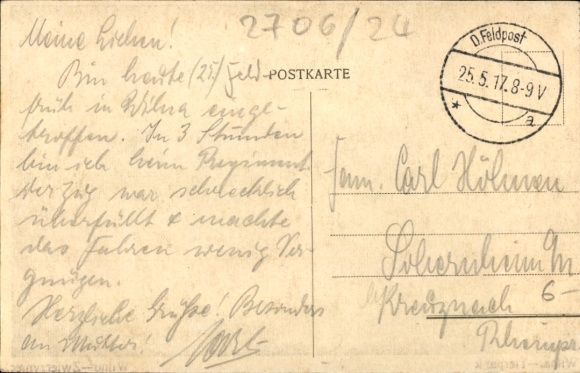 2706/24
Meine Lieben!
Bin heute (25) Feld-POSTKARTE
früh in Wilna einge-
troffen. In 3 Stunden
bin ich beim Regiment.
Der Zug war schrecklich
überfüllt & machte
das Fahren wenig Ver-
gnügen.
Herzliche Grüße! Besonders
an Mutter!
D. Feldpost
25.5.17. 8-9 V
* a
Fam. Carl
Sobernheim
Kreuznach 6-
Rheinpr.